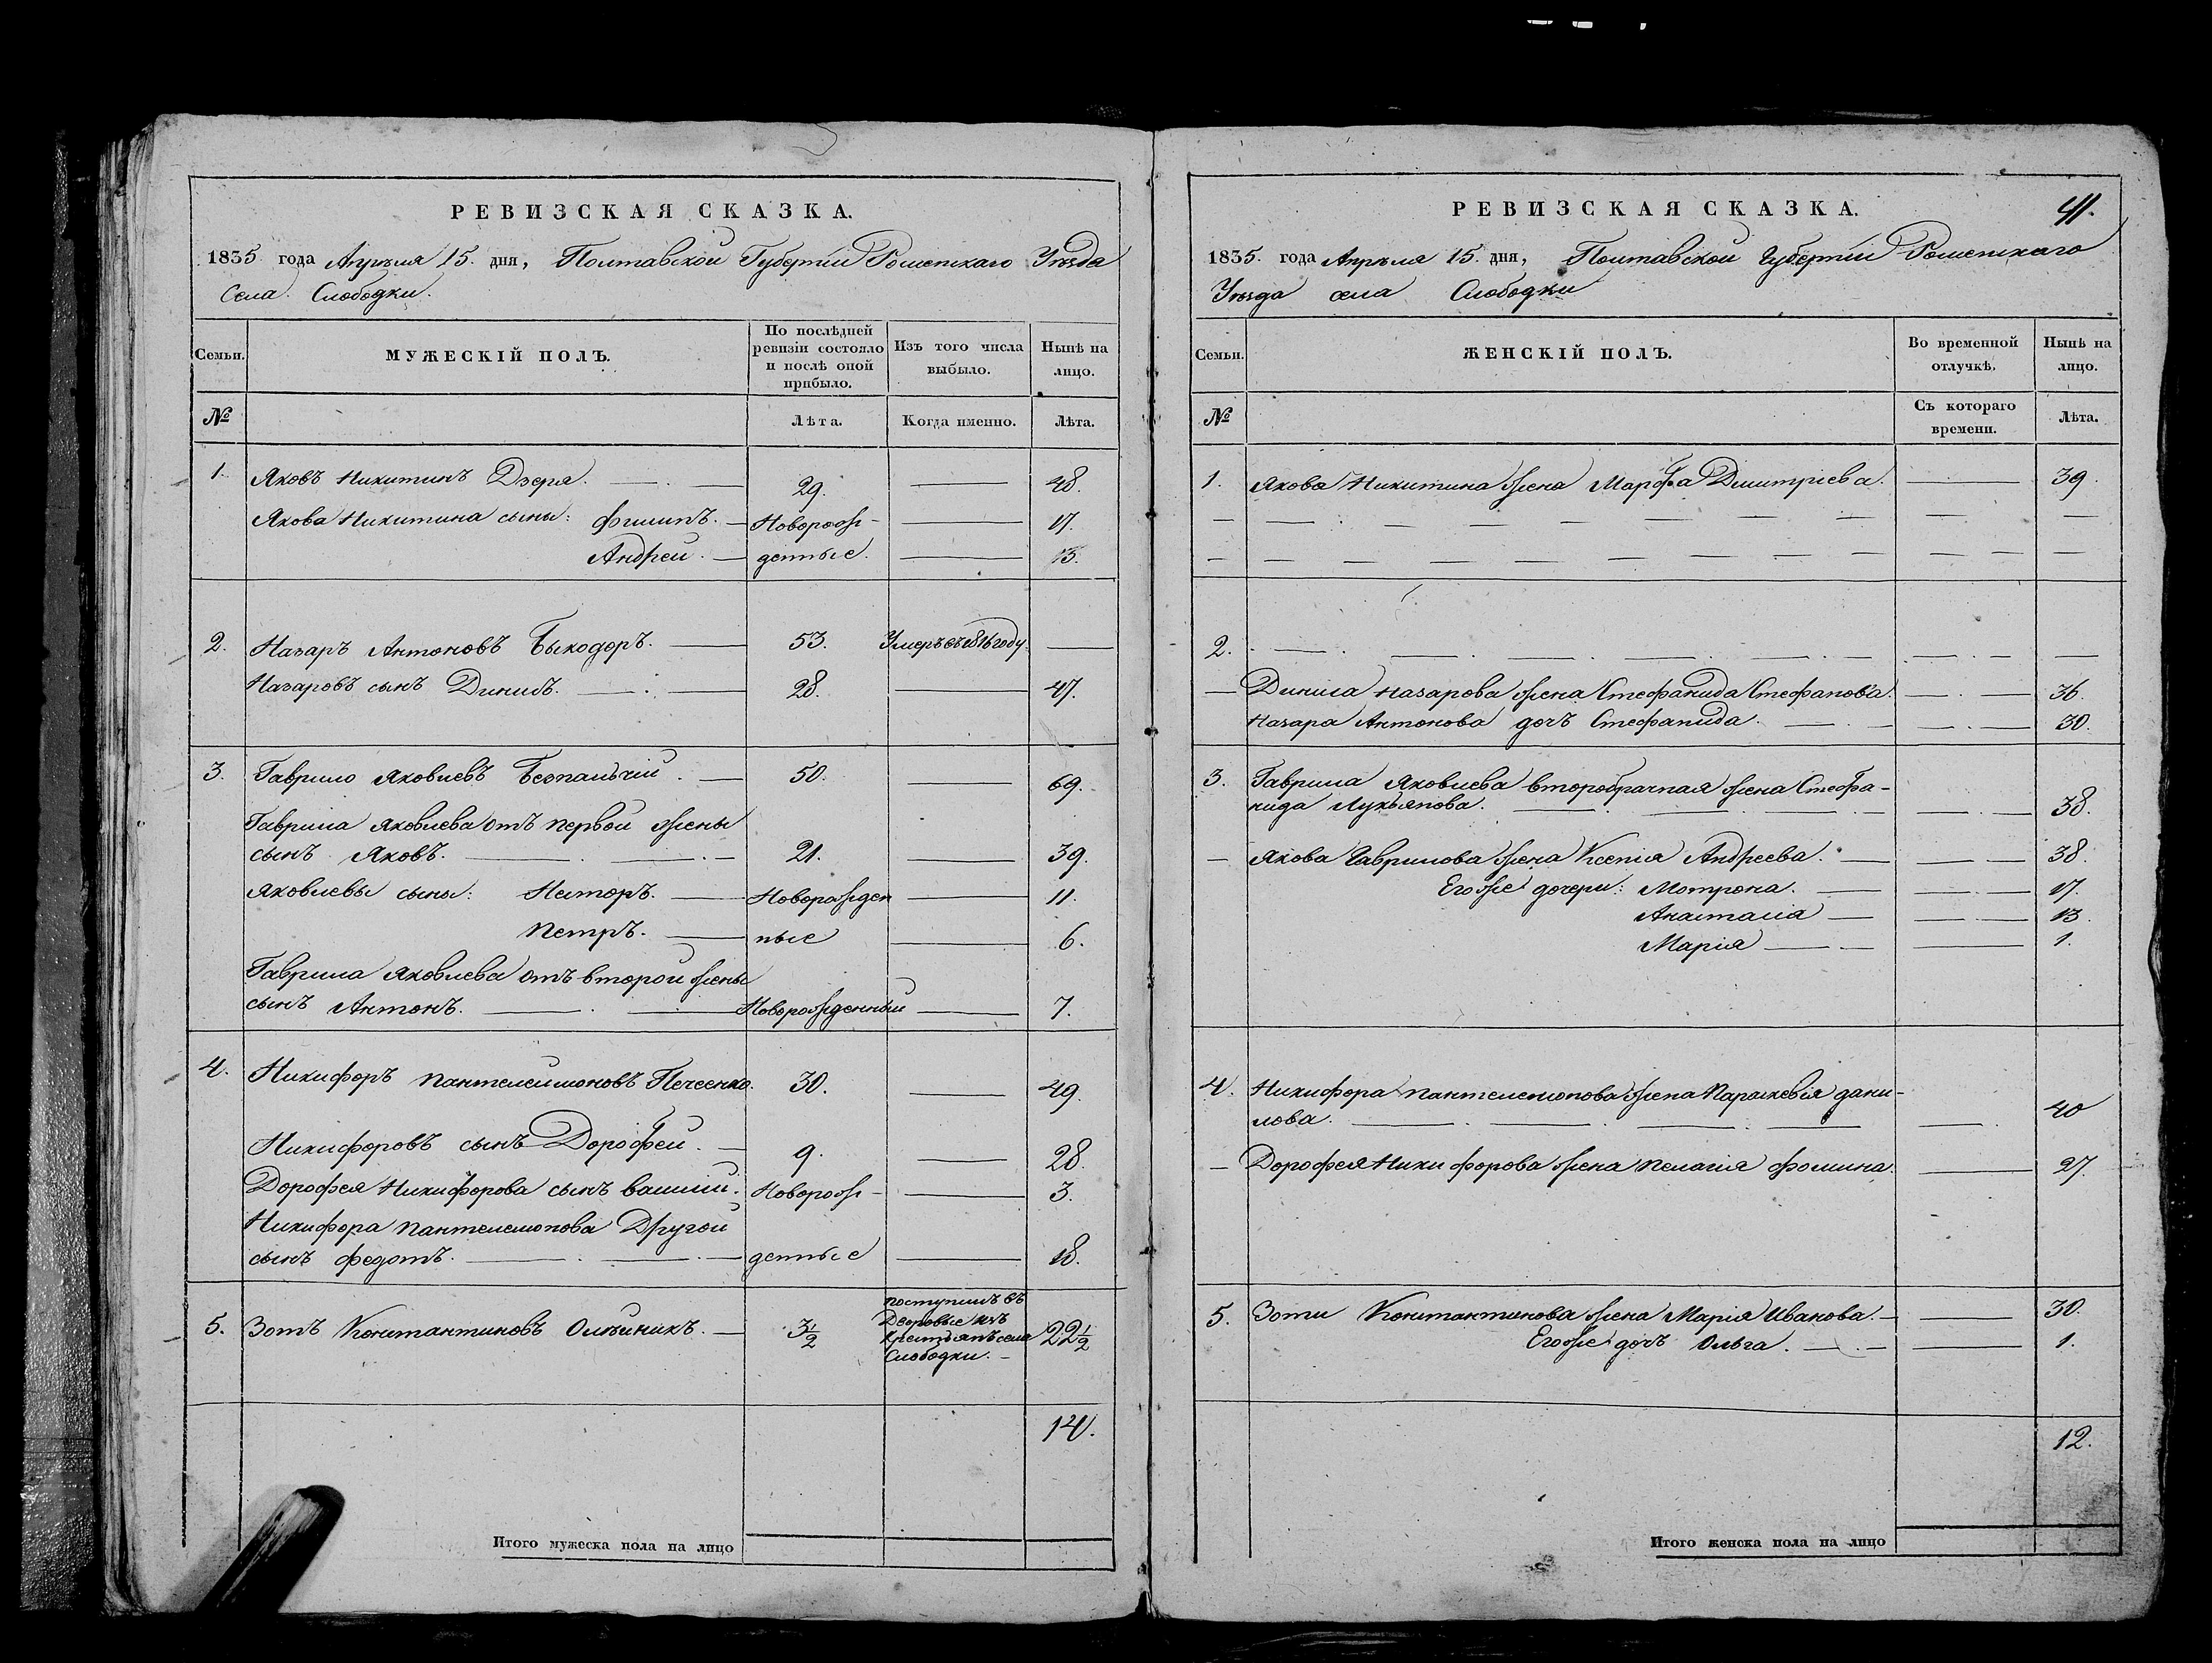 РЕВИЗСКАЯ СКАЗКА.
1835 года Апреля 15. дня, Полтавской Губерніи Роменскаго Уезда
Села Слободки.
Семьи.
МУЖЕСКІЙ ПОЛЪ.
По послѣдней ревизіи состояло и послѣ оной прибыло.
Изъ того числа выбыло.
Нынѣ на лицо.
№
Лѣта.
Когда именно.
Лѣта.
1. Яковъ Никитинъ Дзеря. 29. 48.
Якова Никитина сыны: Филипъ. Новорож- 17.
Андрей. денные. 13.
2. Назаръ Антоновъ Быкодоръ. 53. Умеръ въ 1816 году.
Назаровъ сынъ Динилъ. 28. 47.
3. Гаврило Яковлевъ Безпалчій. 50. 69.
Гаврила Яковлева отъ первой жены
сынъ Яковъ. 21. 39.
Яковлевы сыны: Несторъ. Новорожден 11.
Петръ. ные 6.
Гаврила Яковлева отъ второй жены
сынъ Антонъ. Новорожденный 7.
4. Никифоръ Пантелеимоновъ Печеенко. 30. 49.
Никифоровъ сынъ Дорофей. 9. 28.
Дорофея Никифорова сынъ Василий. Новорож- 3.
Никифора Пантелемонова Другой
сынъ Федотъ. денные 18.
5. Зотъ Константиновъ Олейникъ. 3 1/2 поступилъ въ Дворовые изъ Крестьянъ села Слободки. 22 1/2
14.
Итого мужеска пола на лицо
РЕВИЗСКАЯ СКАЗКА.
41.
1835. года Апреля 15. дня, Полтавской Губерніи Роменскаго
Уезда села Слободки
Семьи.
ЖЕНСКІЙ ПОЛЪ.
Во временной отлучкѣ.
Нынѣ на лицо.
№
Съ котораго времени.
Лѣта.
1. Якова Никитина жена Марфа Дмитріева. 39.
2.
Динила Назарова жена Стефанида Стефанова. 36.
Назара Антонова дочъ Стефанида. 30.
3. Гаврила Яковлева второбрачная жена Стефа-
нида Лукьянова. 38.
Якова Гаврилова жена Ксенія Андреева. 38.
Егоже дочери: Мотрона. 17.
Анастасіа 13.
Маріа 1.
4. Никифора Пантелемонова жена Параскевія Дани-
лова. 40
Дорофея Никифорова жена Пелагія Фомина. 27.
5. Зоти Константинова жена Марія Иванова. 30.
Егоже дочъ Ольга. 1.
12.
Итого женска пола на лицо